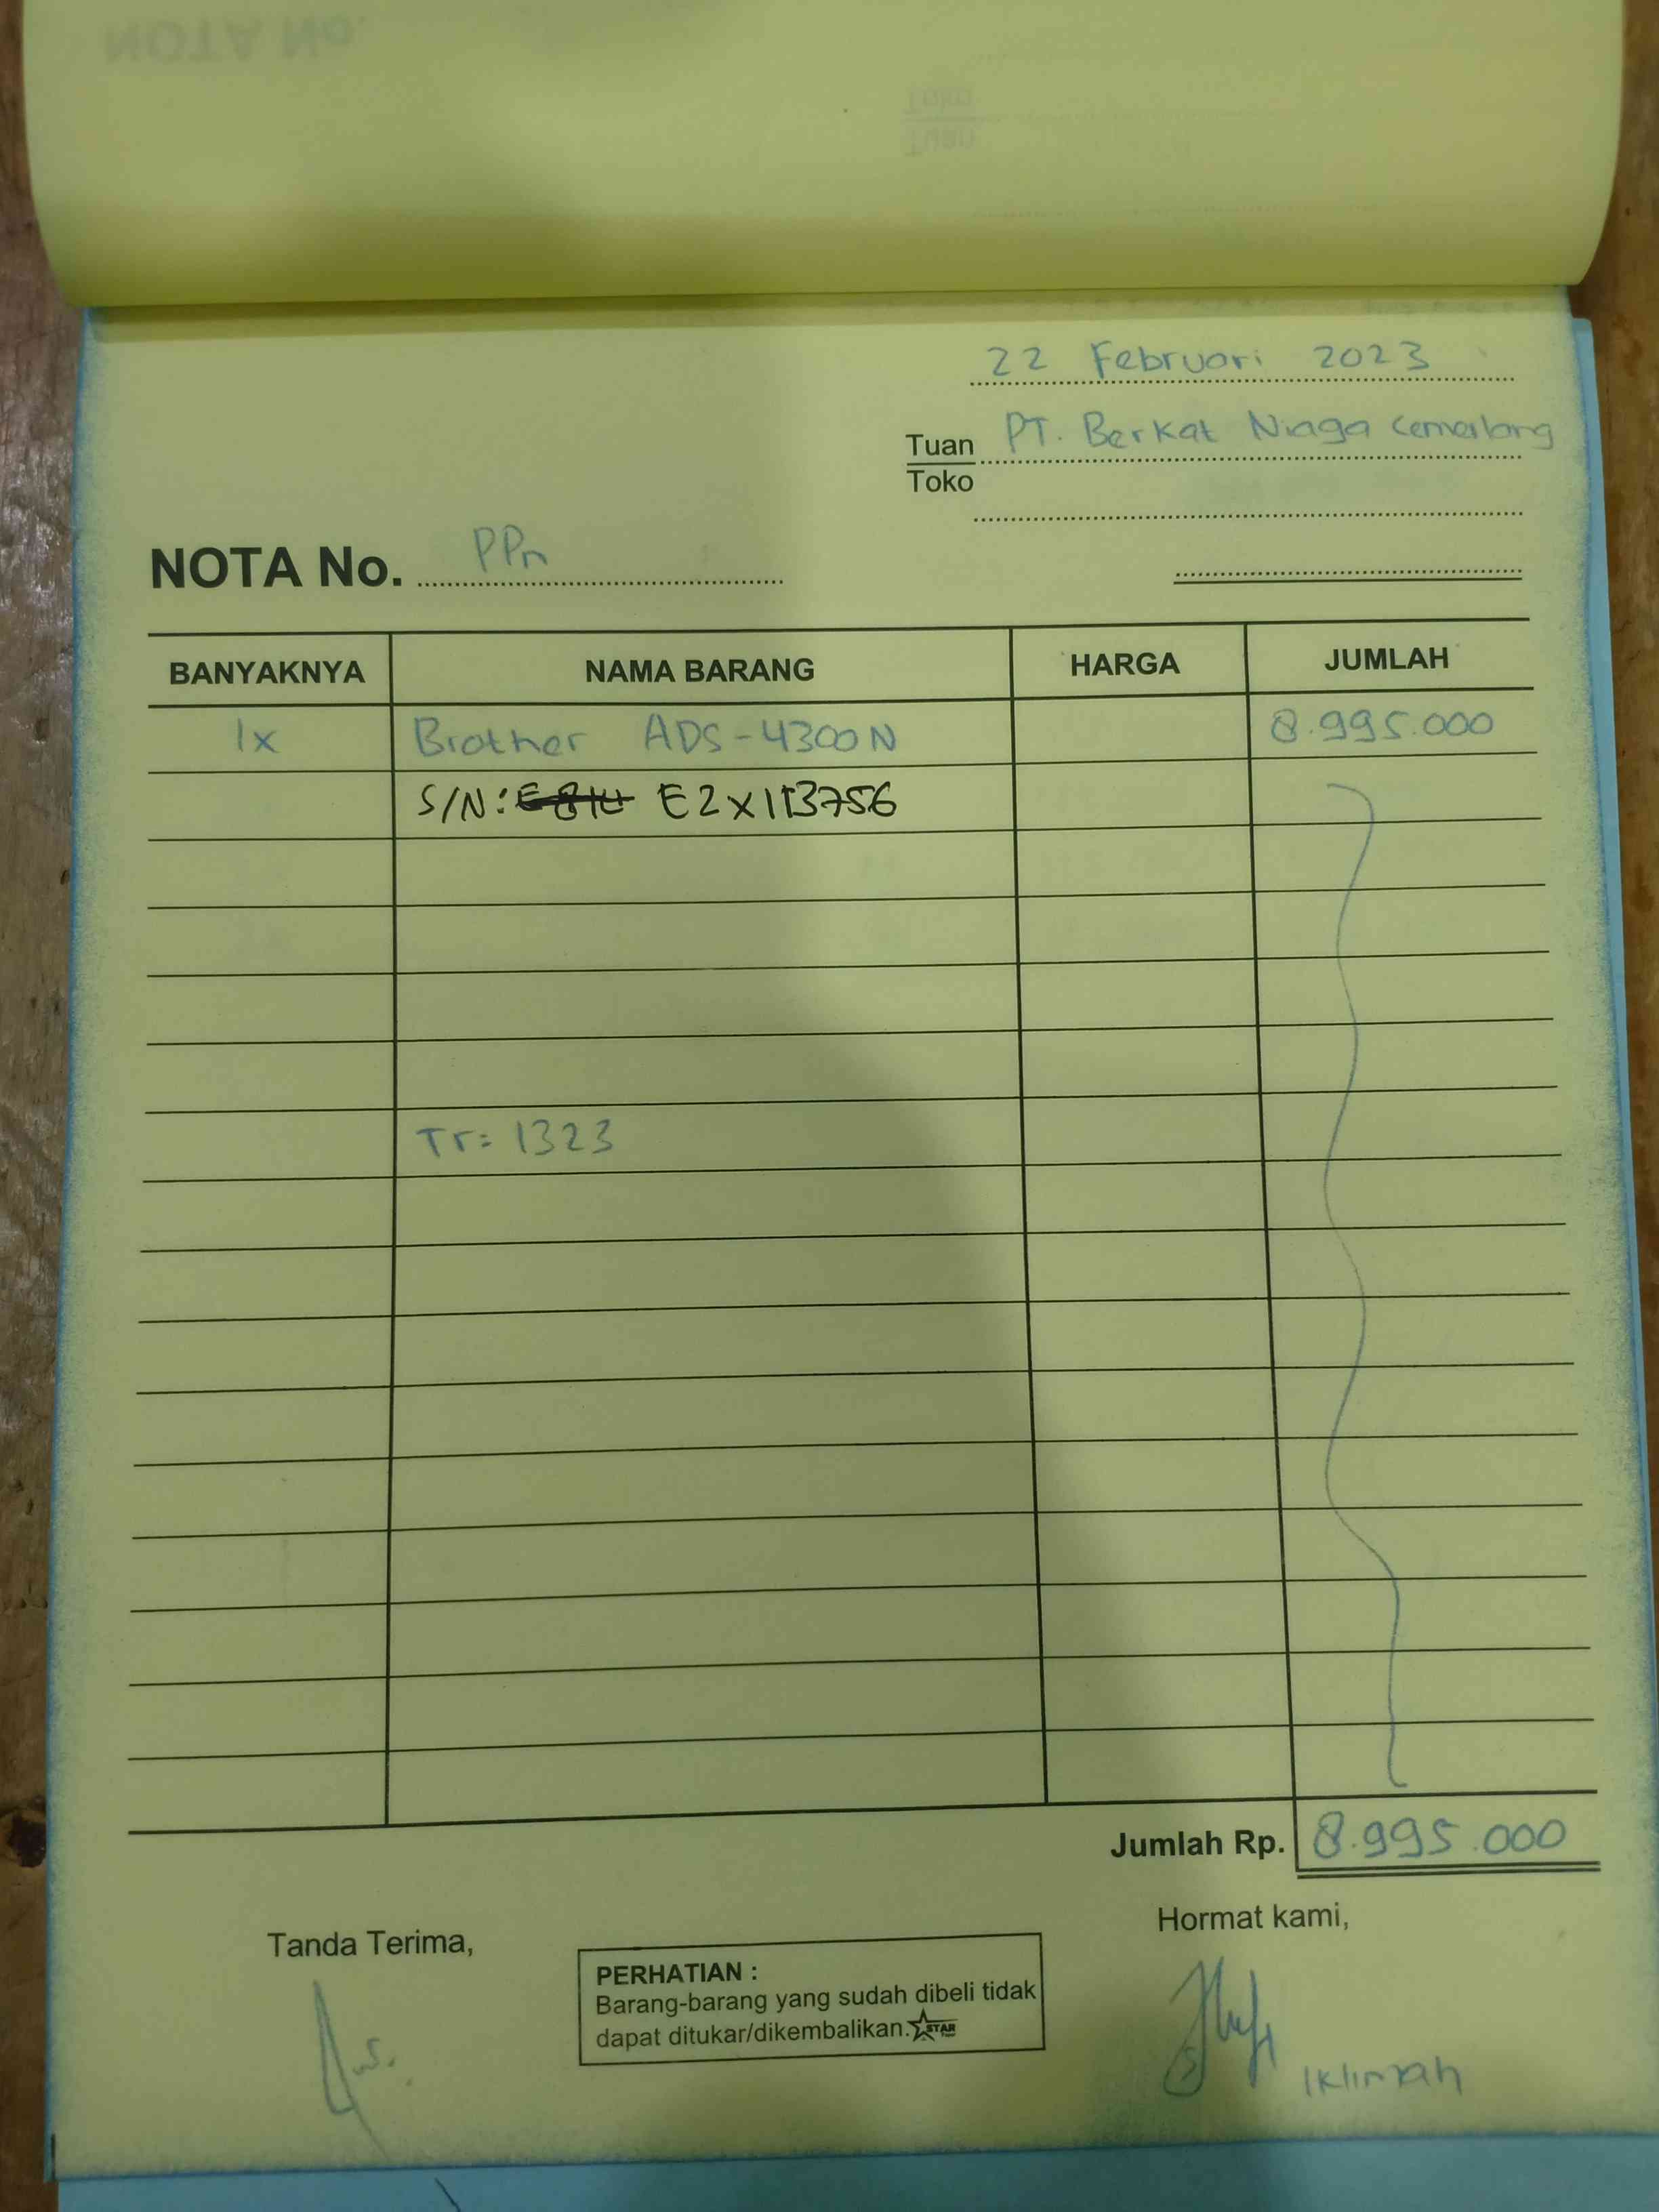 NOTA No.
Toko
Tuan
22 Februari 2023
Tuan PT. Berkat Niaga Cemerlang
Toko
NOTA No. PPn
BANYAKNYA NAMA BARANG HARGA JUMLAH
1x Brother ADS-4300N 8.995.000
S/N: E2X113756
Tr: 1323
Jumlah Rp. 8.995.000
Tanda Terima, Hormat kami,
PERHATIAN :
Barang-barang yang sudah dibeli tidak
dapat ditukar/dikembalikan. STAR
Iklimah